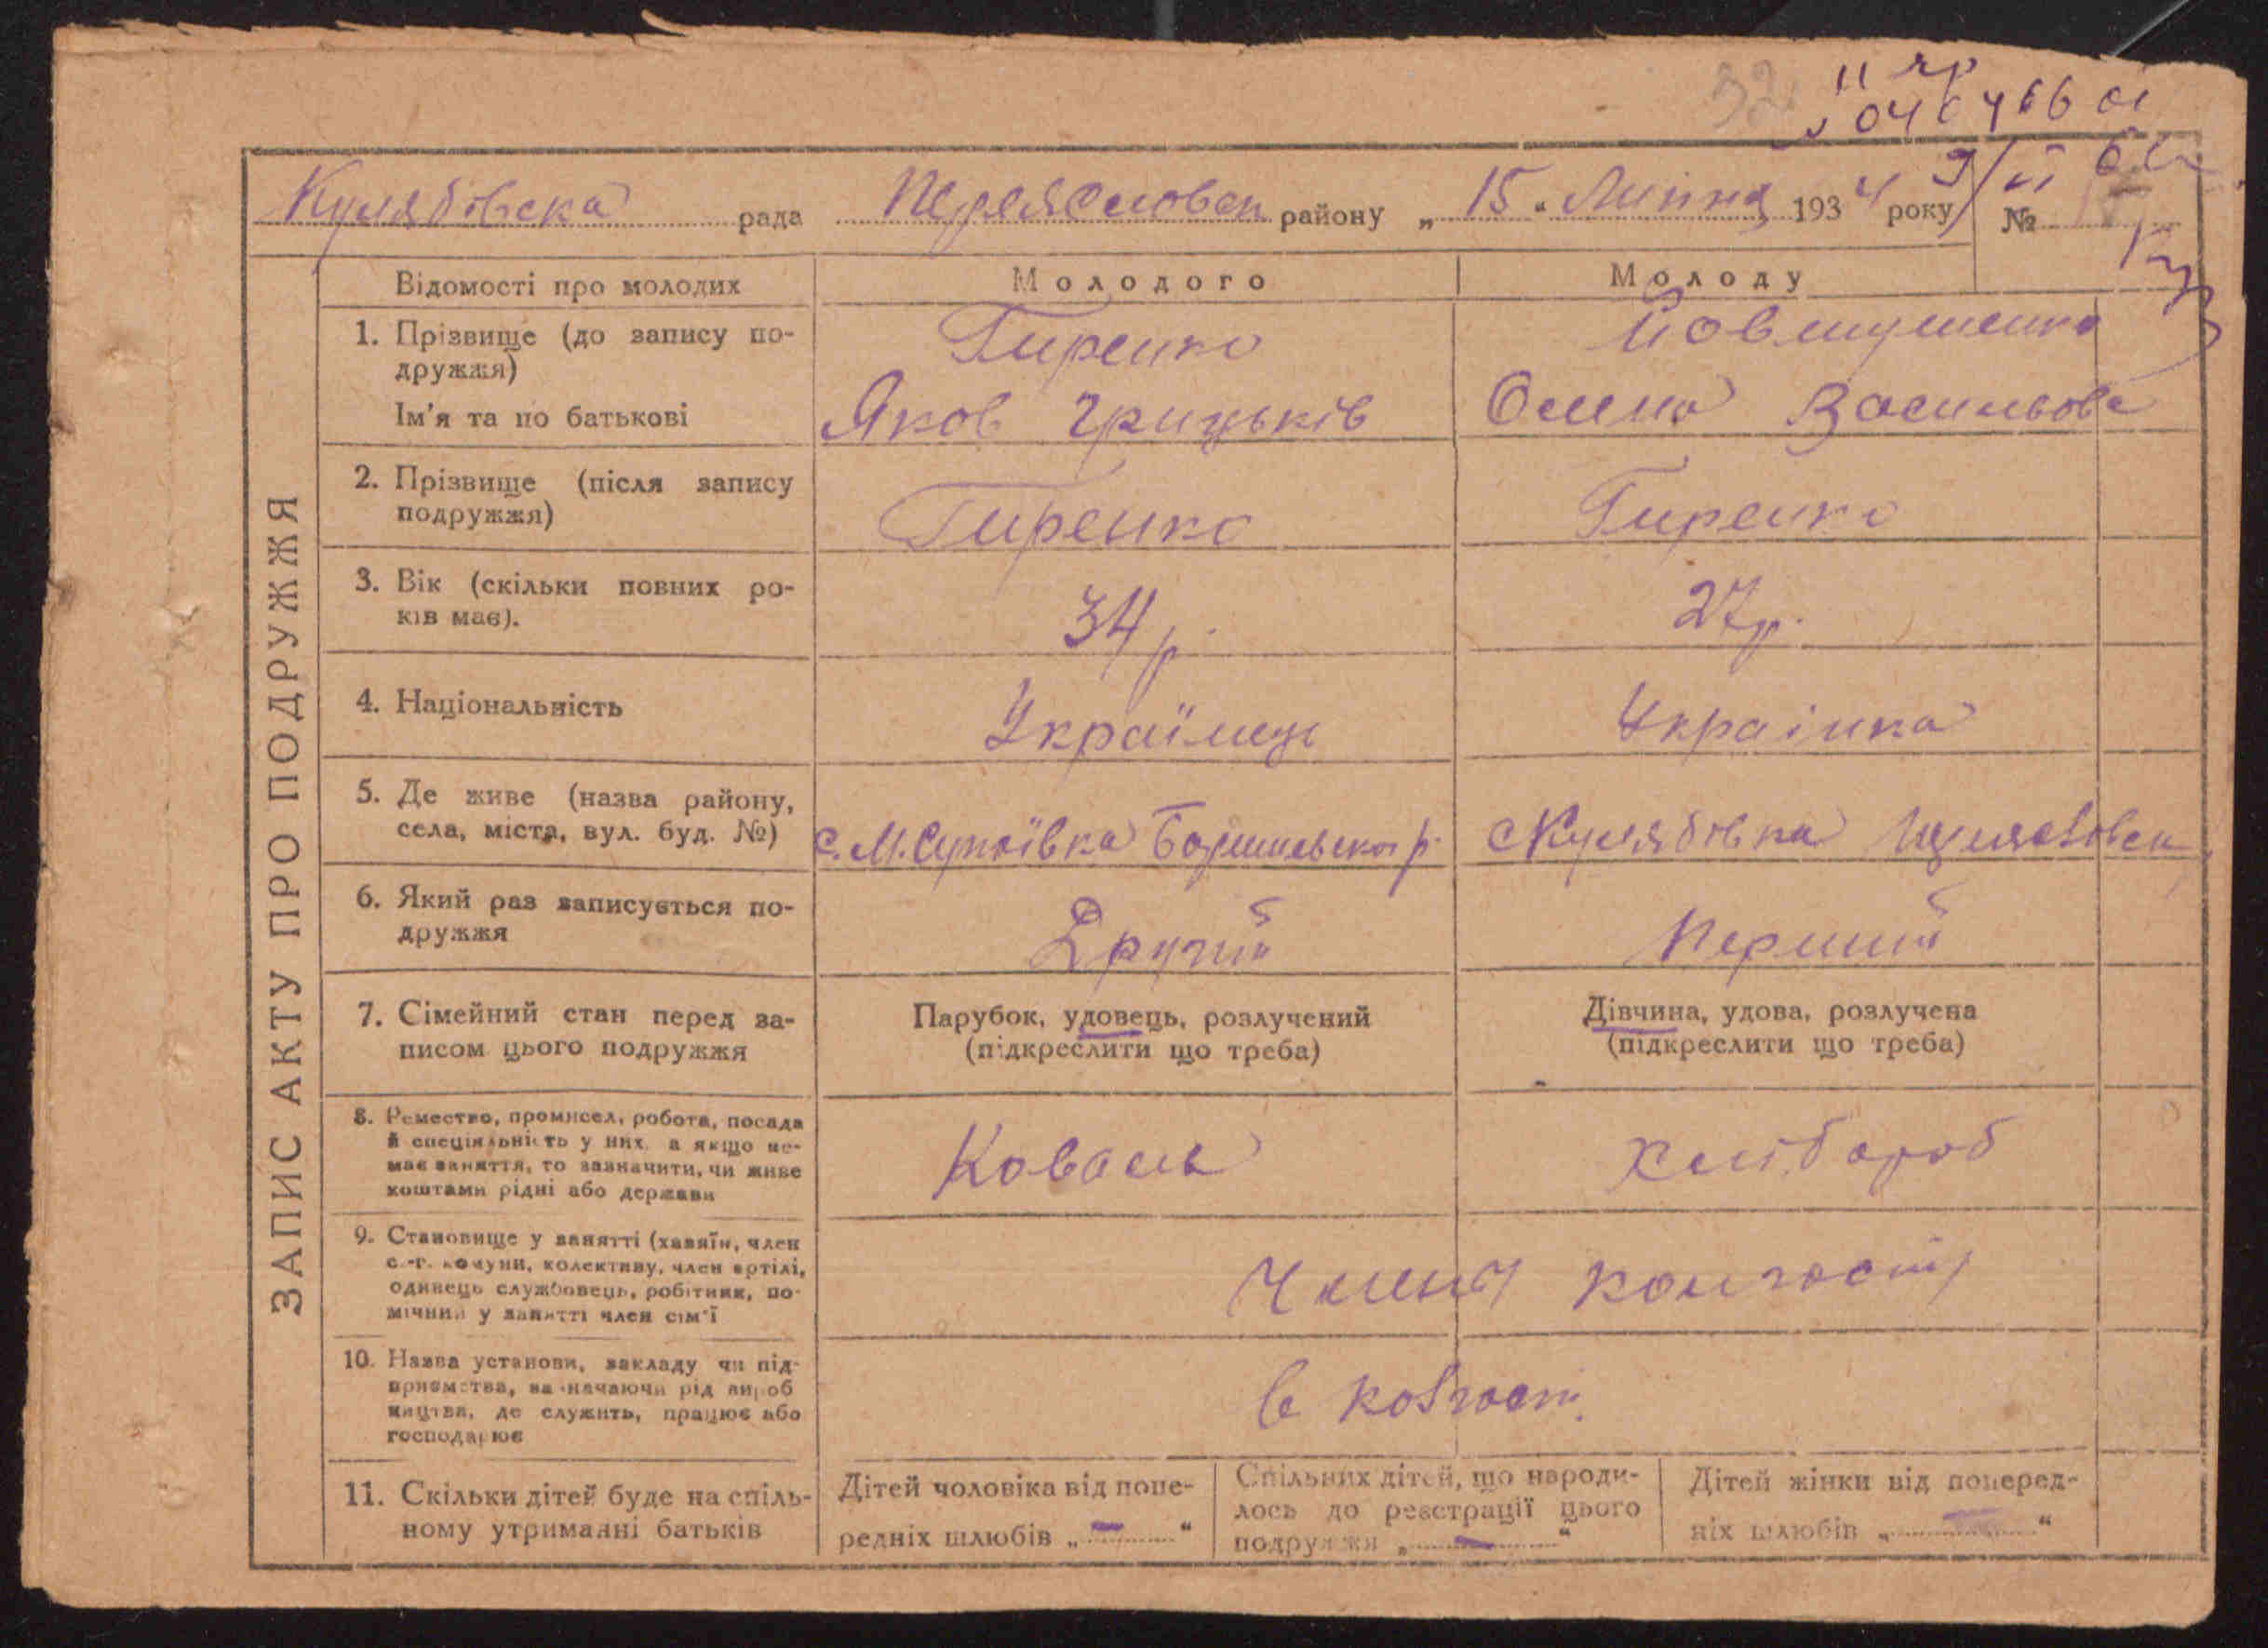 32
Кулябовска рада Переяславськ району „15“ Липня 1934 року №
ЗАПИС АКТУ ПРО ПОДРУЖЖЯ
Відомості про молодих
Молодого
Молоду
1. Прізвище (до запису по-
дружжя)
Ім'я та по батькові
Гиренко
Яков Грицьків
Олена Васильова
2. Прізвище (після запису
подружжя)
Гиренко
Гиренко
3. Вік (скільки повних ро-
ків має).
34 р.
27 р.
4. Національність
Українець
Українка
5. Де живе (назва району,
села, міста, вул. буд. №)
с. М. Супоївка р.
с Кулябовка
6. Який раз записується по-
дружжя
Другий
Перший
7. Сімейний стан перед за-
писом цього подружжя
Парубок, удовець, розлучений
(підкреслити що треба)
Дівчина, удова, розлучена
(підкреслити що треба)
8. Ремество, промисел, робота, посада
й спеціяльність у них, а якщо не-
має заняття, то зазначити, чи живе
коштами рідні або держави
Коваль
хлібороб
9. Становище у занятті (хазяїн, член
с.-г. комуни, колективу, член артілі,
одинець службовець, робітник, по-
мічний у занятті член сім'ї
Члени колгоспу
10. Назва установи, закладу чи під-
приємства, зазначаючи рід вироб
ництва, де служить, працює або
господарює
в колгосп.
11. Скільки дітей буде на спіль-
ному утриманні батьків
Дітей чоловіка від попе-
редніх шлюбів „ — “
Спільних дітей, що народи-
лось до реєстрації цього
подружжя „ — “
Дітей жінки від поперед-
ніх шлюбів „ — “